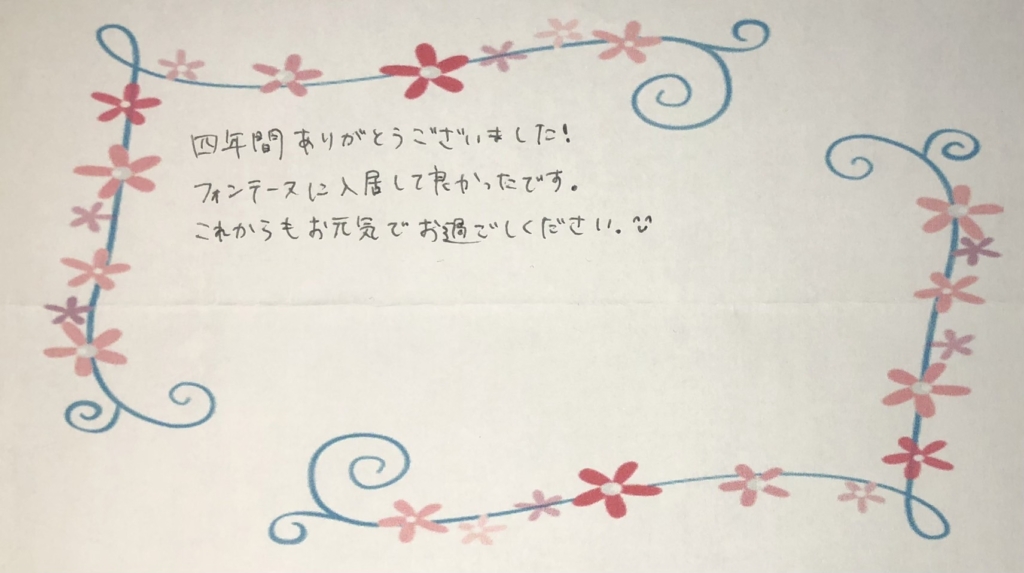 四年間ありがとうございました!
フォンテーヌに入居して良かったです。
これからもお元気でお過ごしください。